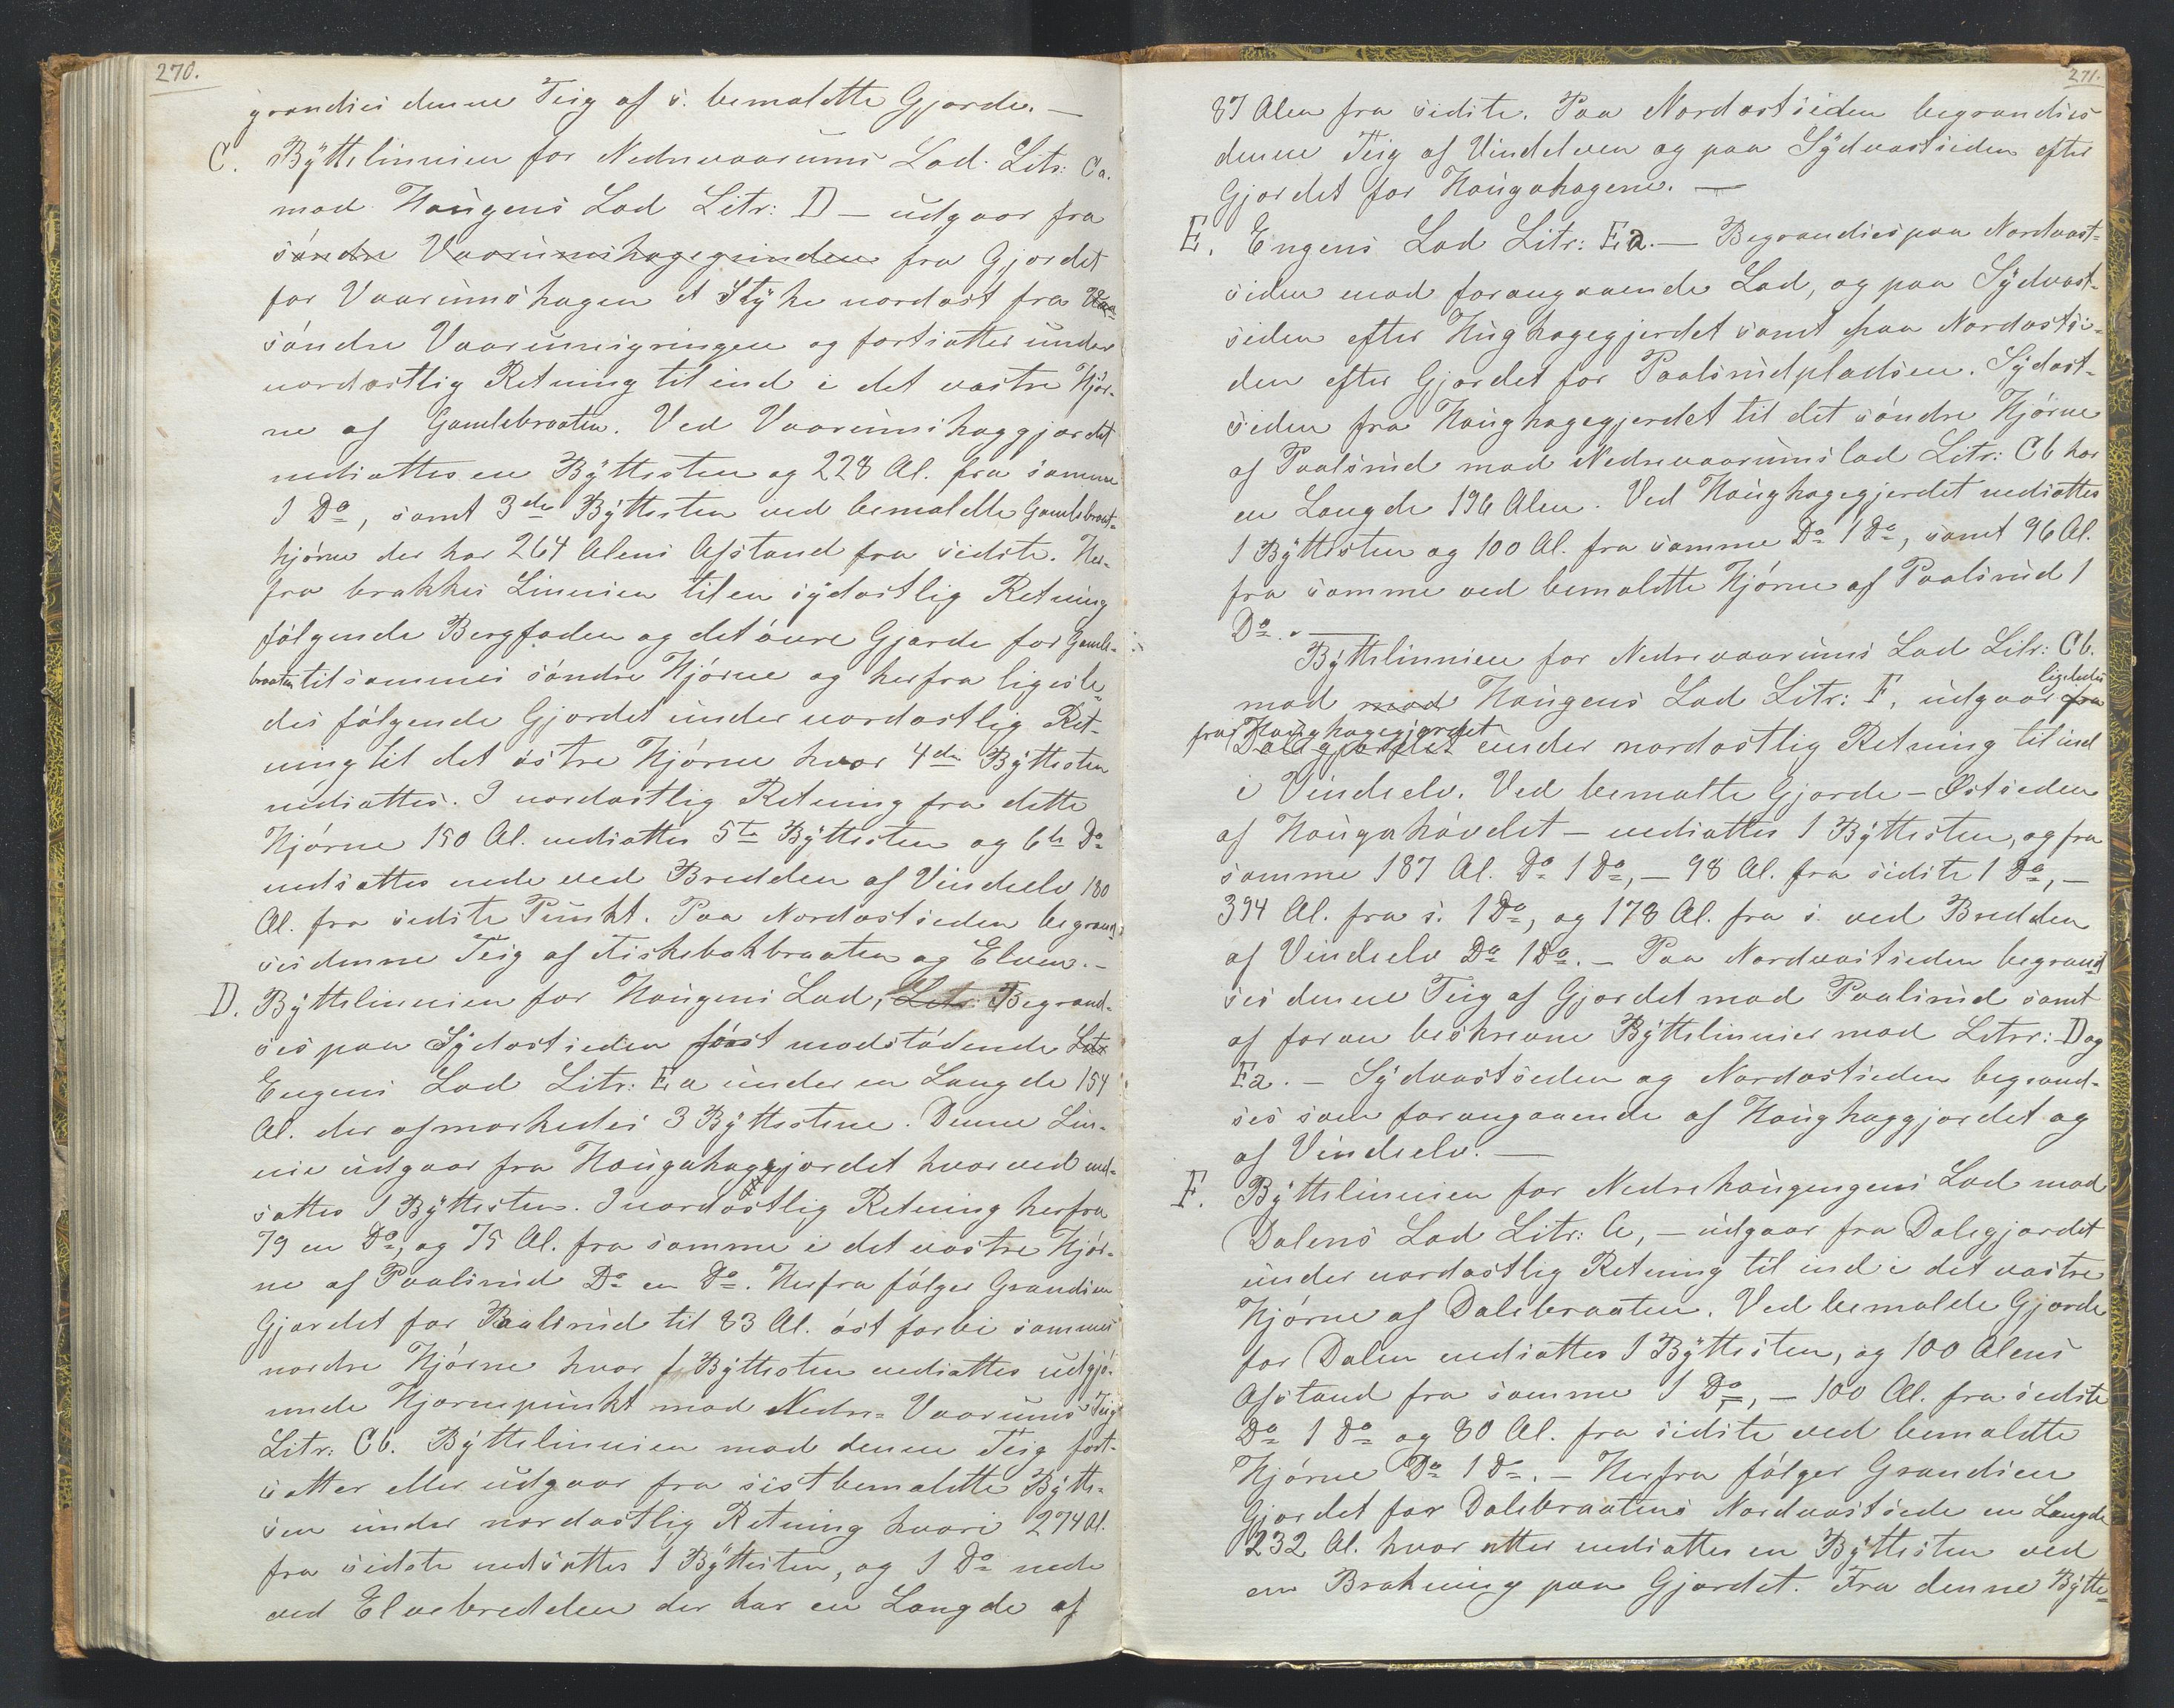 270.
grændses denne Teig af s. bemældte Gjærde. —
C. Byttelinnien for Nedrevaarums Lod Litr: Ca.
mod Haugens Lod Litr: D — udgaar fra
søndre Vaarumshagegrinden fra Gjærdet
for Vaarumshagen et Stykke nordøst fra Vaa-
søndre Vaarumsgringen og fortsætter under
nordøstlig Retning til ind i det vestre Hjør-
ne af Gamlebraaten. Ved Vaarumshaggjærdet
nedsættes en Byttesten og 228 Al. fra samme
1 Do, samt 3de Byttesten ved bemældte Gamlebraat-
hjørne der har 264 Alens Afstand fra sidste. Her-
fra brækkes Linnien til en sydøstlig Retning
følgende Bergfoden og det øvre Gjærde for Gamle-
braaten til sammes søndre Hjørne og herfra ligele-
des følgende Gjærdet under nordøstlig Ret-
ning til det østre Hjørne hvor 4de Byttesten
nedsættes. I nordøstlig Retning fra dette
Hjørne 150 Al. nedsættes 5te Byttesten og 6te Do
nedsættes nede ved Bredden af Vindselv 180
Al. fra sidste Punkt. Paa Nordøstsiden begrænd-
ses denne Teig af Fiskebækbraaten og Elven. —
D. Byttelinnien for Haugens Lod, Litr: Begrænd-
ses paa Sydøstsiden først modstødende Litr
Engens Lod Litr: Ea under en Længde 154
Al. der afmærkedes 3 Byttestene. Denne Lin-
nie udgaar fra Haugahaggjærdet hvorved ned-
sættes 1 Byttesten. I nordøstlig Retning herfra
79 en Do, og 75 Al. fra samme i det vestre Hjør-
ne af Paalsrud Do en Do. Herfra følger Grændsen
Gjærdet for Paalsrud til 83 Al. øst forbi sammes
nordre Hjørne hvor 1 Byttesten nedsættes udgjø-
rende Hjørnepunkt mod Nedre-Vaarums Teig
Litr: Cb. Byttelinnien mod denne Teig fort-
sætter eller udgaar fra sist bemældte Bytte-
sen under nordøstlig Retning hvori 274 Al.
fra sidste nedsættes 1 Byttesten, og 1 Do nede
ved Elvebredden der har en Længde af
271.
87 Alen fra sidste. Paa Nordøstsiden begrændses
denne Teig af Vindelven og paa Sydvestsiden efter
Gjærdet for Haugahagene. —
E. Engens Lod Litr: Ea. — Begrændses paa Nordvest-
siden mod forangaaende Lod, og paa Sydvest-
siden efter Haughagegjerdet samt paa Nordøstsi-
den efter Gjærdet for Paalsrudpladsen. Sydøst-
siden fra Haughagegjerdet til det søndre Hjørne
af Paalsrud mod Nedrevaarumslod Litr: Cb har
en Længde 196 Alen. Ved Haughagegjerdet nedsættes
1 Byttesten og 100 Al. fra samme Do 1 Do, samt 96 Al.
fra samme ved bemældte Hjørne af Paalsrud 1
Do. —
Byttelinnien for Nedrevaarums Lod Litr: Cb.
mod mod Haugens Lod Litr: F, udgaar ligeledes fra
fra Haughagegjærdet Dalegjærdet under nordøstlig Retning til ind
i Vindselv. Ved bemælte Gjærde — Østsiden
af Haugahøvdet — nedsættes 1 Byttesten, og fra
samme 187 Al. Do 1 Do, — 98 Al. fra sidste 1 Do, —
394 Al. fra s. 1 Do, og 178 Al. fra s. ved Bredden
af Vindselv Do 1 Do. — Paa Nordvestsiden begrænd-
ses denne Teig af Gjærdet mod Paalsrud samt
af foran beskrevne Byttelinnier mod Litrr: D og
Ea. — Sydvestsiden og Nordøstsiden begrænd-
ses som forangaaende af Haughaggjærdet og
af Vindselv. —
F. Byttelinnien for Nedrehaugengens Lod mod
Dalens Lod Litr: A, — udgaar fra Dalegjærdet
under nordøstlig Retning til ind i det vestre
Hjørne af Dalebraaten. Ved bemælde Gjærde
for Dalen nedsættes 1 Byttesten, og 100 Alens
Afstand fra samme 1 Do, — 100 Al. fra sidste
Do 1 Do og 80 Al. fra sidste ved bemældte
Hjørne Do 1 Do. — Herfra følger Grændsen
Gjærdet for Dalebraatens Nordvestside en Længde
232 Al. hvor atter nedsættes en Byttesten ved
en Brækning paa Gjærdet. Fra denne Bytte-